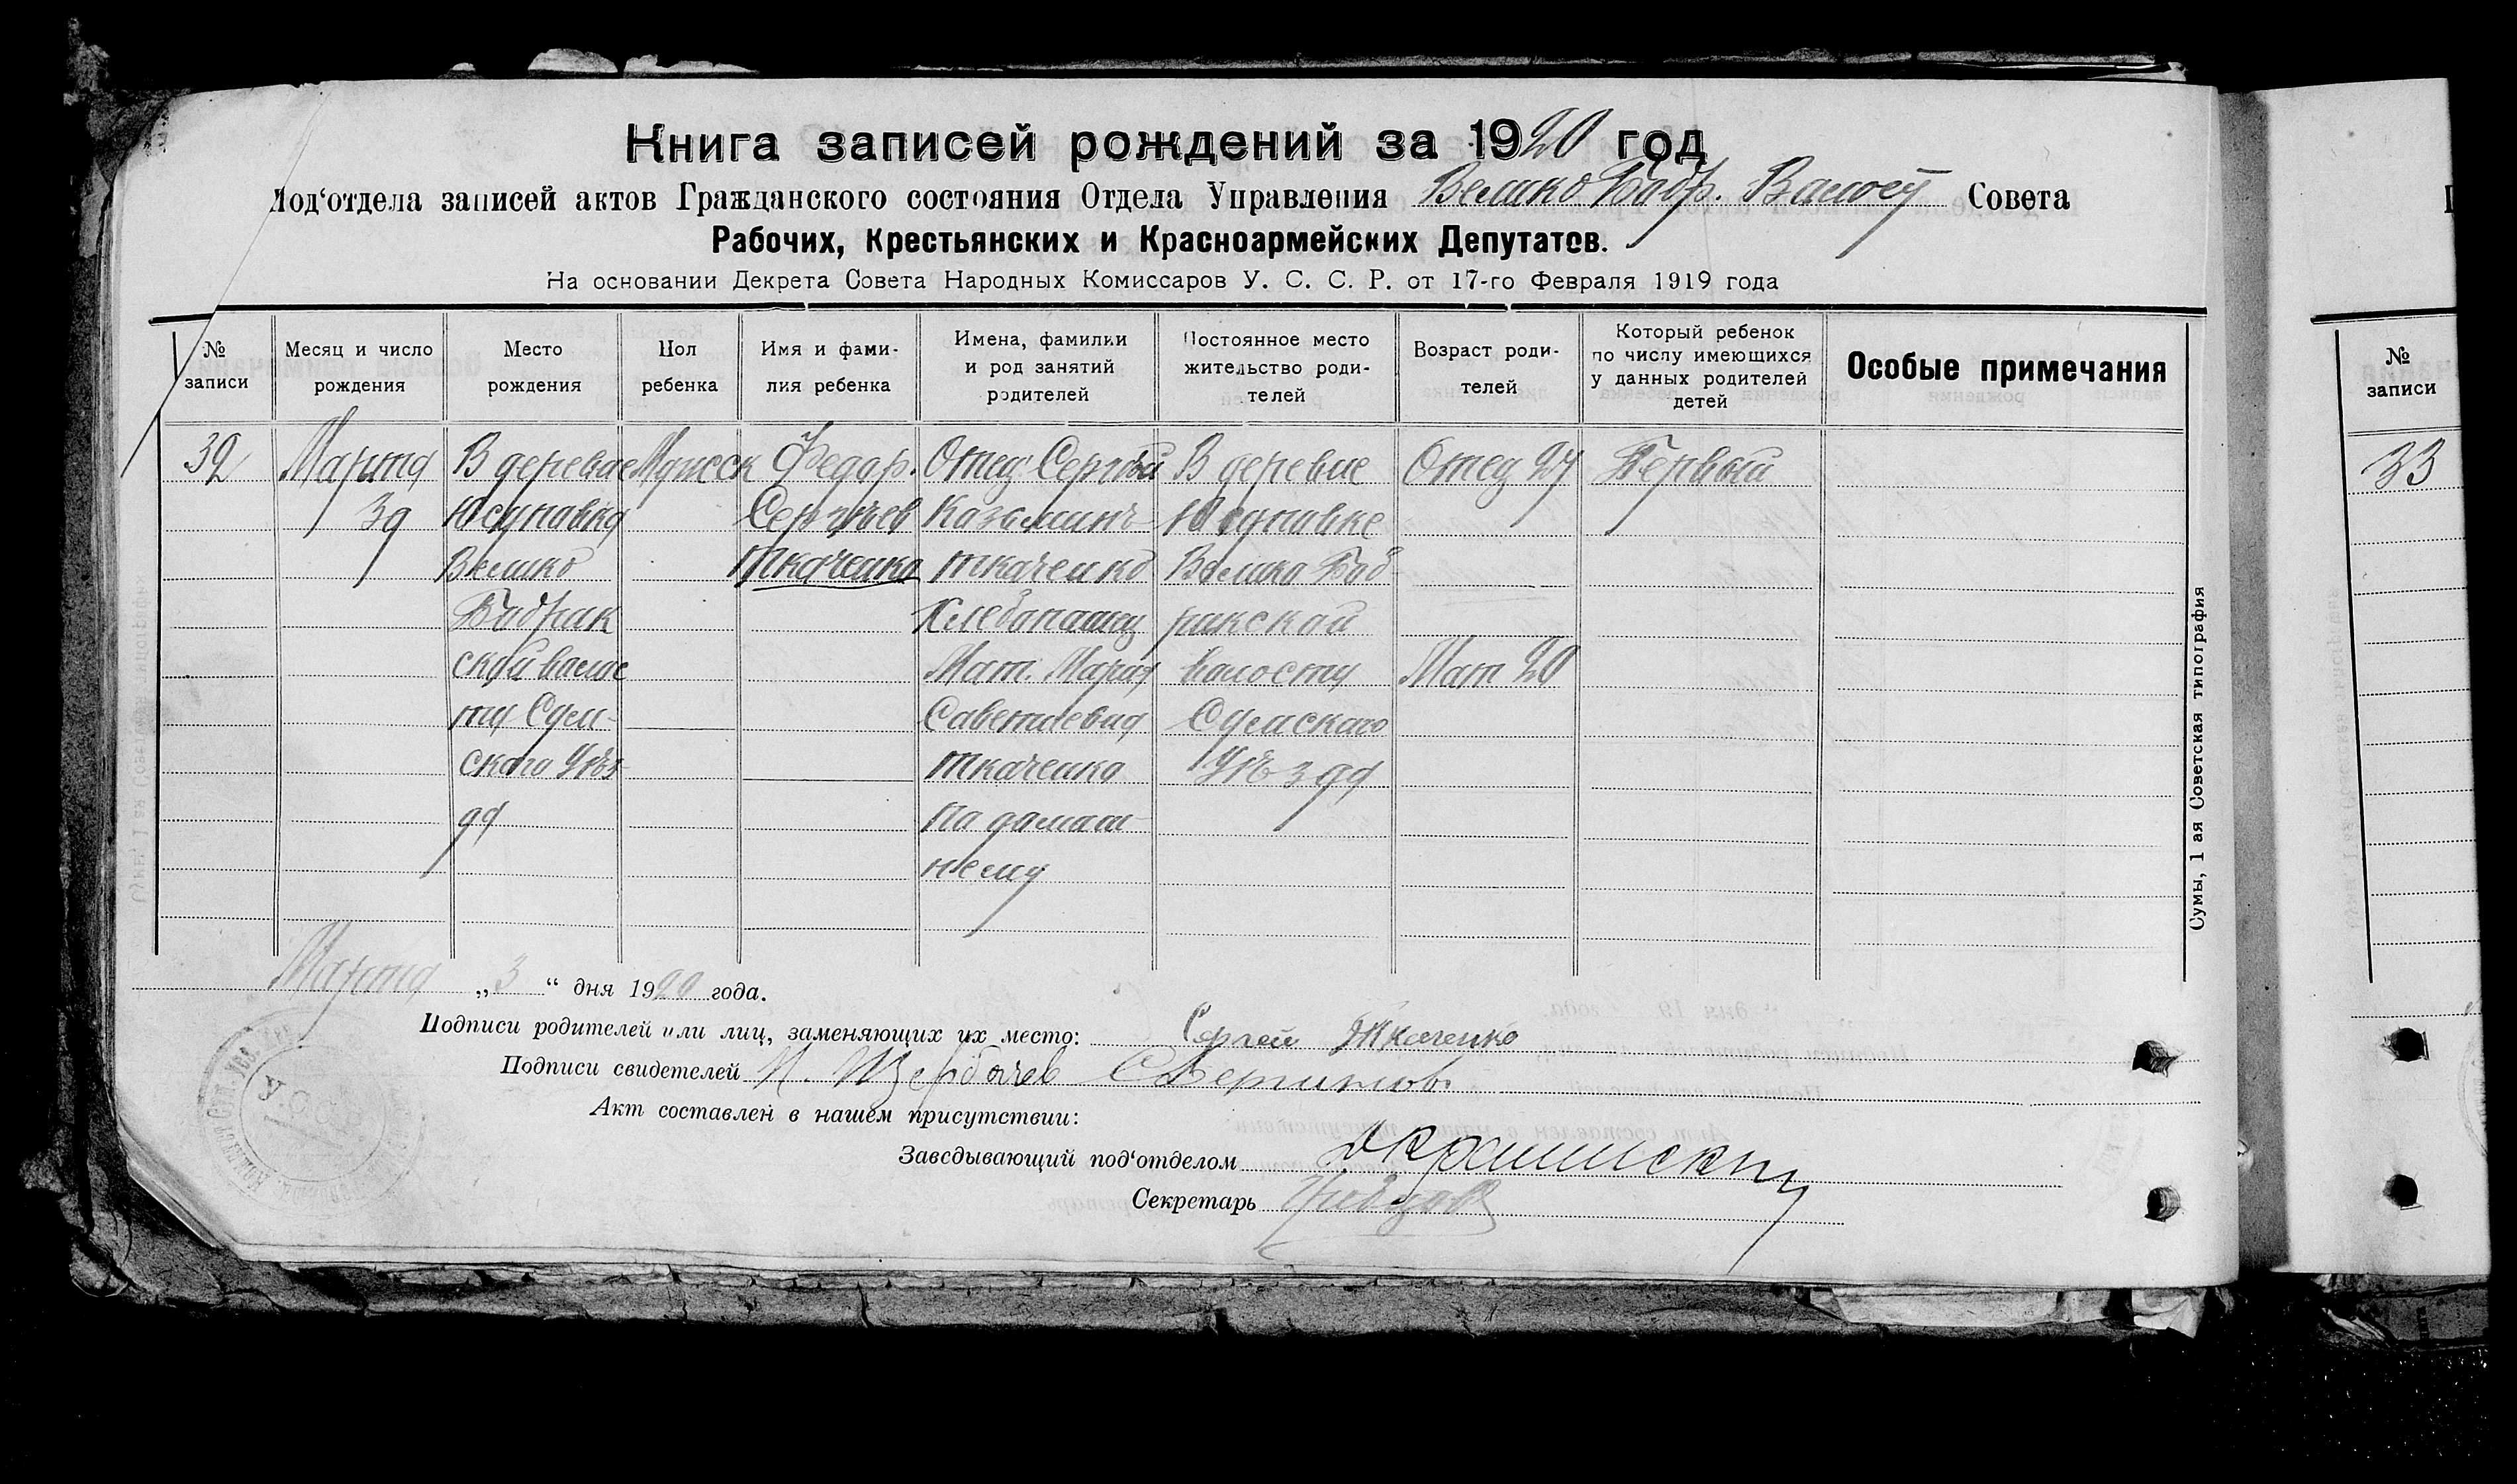 Книга записей рождений за 1920 год
Под‘отдела записей актов Гражданского состояния Отдела Управления Велико Бобр. Волост Совета
Рабочих, Крестьянских и Красноармейских Депутатов.
На основании Декрета Совета Народных Комиссаров У. С. С. Р. от 17-го Февраля 1919 года
№ записи
Месяц и число рождения
Место рождения
Пол ребенка
Имя и фами-
лия ребенка
Имена, фамилии
и род занятий
родителей
Постоянное место
жительство роди-
телей
Возраст роди-
телей
Который ребенок
по числу имеющихся
у данных родителей
детей
Особые примечания
32
Марта
3д
В деревне
Юсуповка
Велико
Бобрик
ской волос
ти Сум-
ского Уѣз
да
Мужск
Федор.
Сергѣев
Ткаченко
Отец Сергѣй
Казьминъ
Ткаченко
Хлебопашец
Мат. Мария
Савельевна
Ткаченко
По домаш-
нему
В деревне
Юсуповке
Велико Боб
рикской
волости
Сумскаго
Уѣзда
Отец 27
Мат 20
Первый
Марта „ 3 “ дня 1920 года.
Подписи родителей или лиц, заменяющих их место: Сергей Ткаченко
Подписи свидетелей
Акт составлен в нашем присутствии:
Заведывающий под‘отделом
Секретарь
Сумы, 1 ая Советская типография
№
записи
33